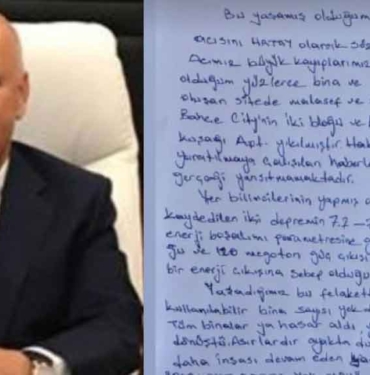 Bu yaşamış olduğum
acısını HATAY olarak
Acımız büyük kayıplarımız
olduğum yüzlerce bina ve
oluşan sitede malasef ve
Bahçe City'nin iki bloğu ve
kuşağı Apt. yıkılmıştır
yansıtılmaya çalışılan haberle
gerçeği yansıtmamaktadır.
Yer bilimcilerinin yapmış
kaydedilen iki depremin 7.7 –
enerji boşalımı parametresine
ğü ve 120 megaton güç çıkışı
bir enerji çıkışına sebep olduğu
Yaşadığımız bu felaket
kullanılabilir bina sayısı yok
Tüm binalar ya hasar aldı
dönüştü. Asırlardır ayakta
daha inşası devam eden